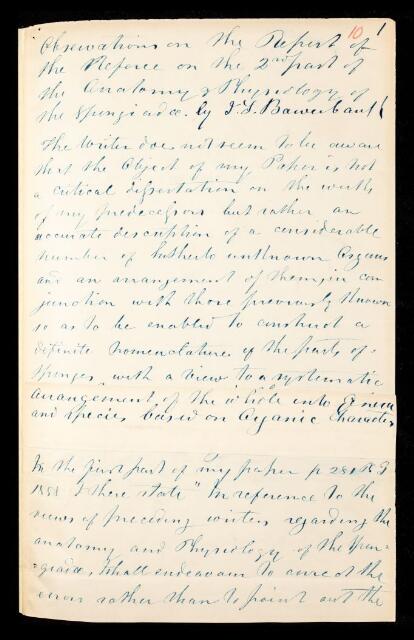 10 1
Observations on the Report of
the Referee on the 2nd part of
the Anatomy & Physiology of
the Spongiadæ. by J. S. Bowerbank
The Writer does not seem to be aware
that the Object of my Paper is not
a critical dissertation on the works
of my predecessors but rather an
accurate description of a considerable
number of hitherto unknown Organs
and an arrangement of them in con
junction with those previously known
so as to be enabled to construct a
definite nomenclature of the parts of
Sponges, with a view to a systematic
arrangement of the whole into Genera
and Species based on Organic Characters
In the first part of my paper p 281
I there state "In reference to the
views of preceding writers regarding the
anatomy and Physiology of the Spon-
-giadæ, I shall endeavour to correct the
errors rather than to point out the